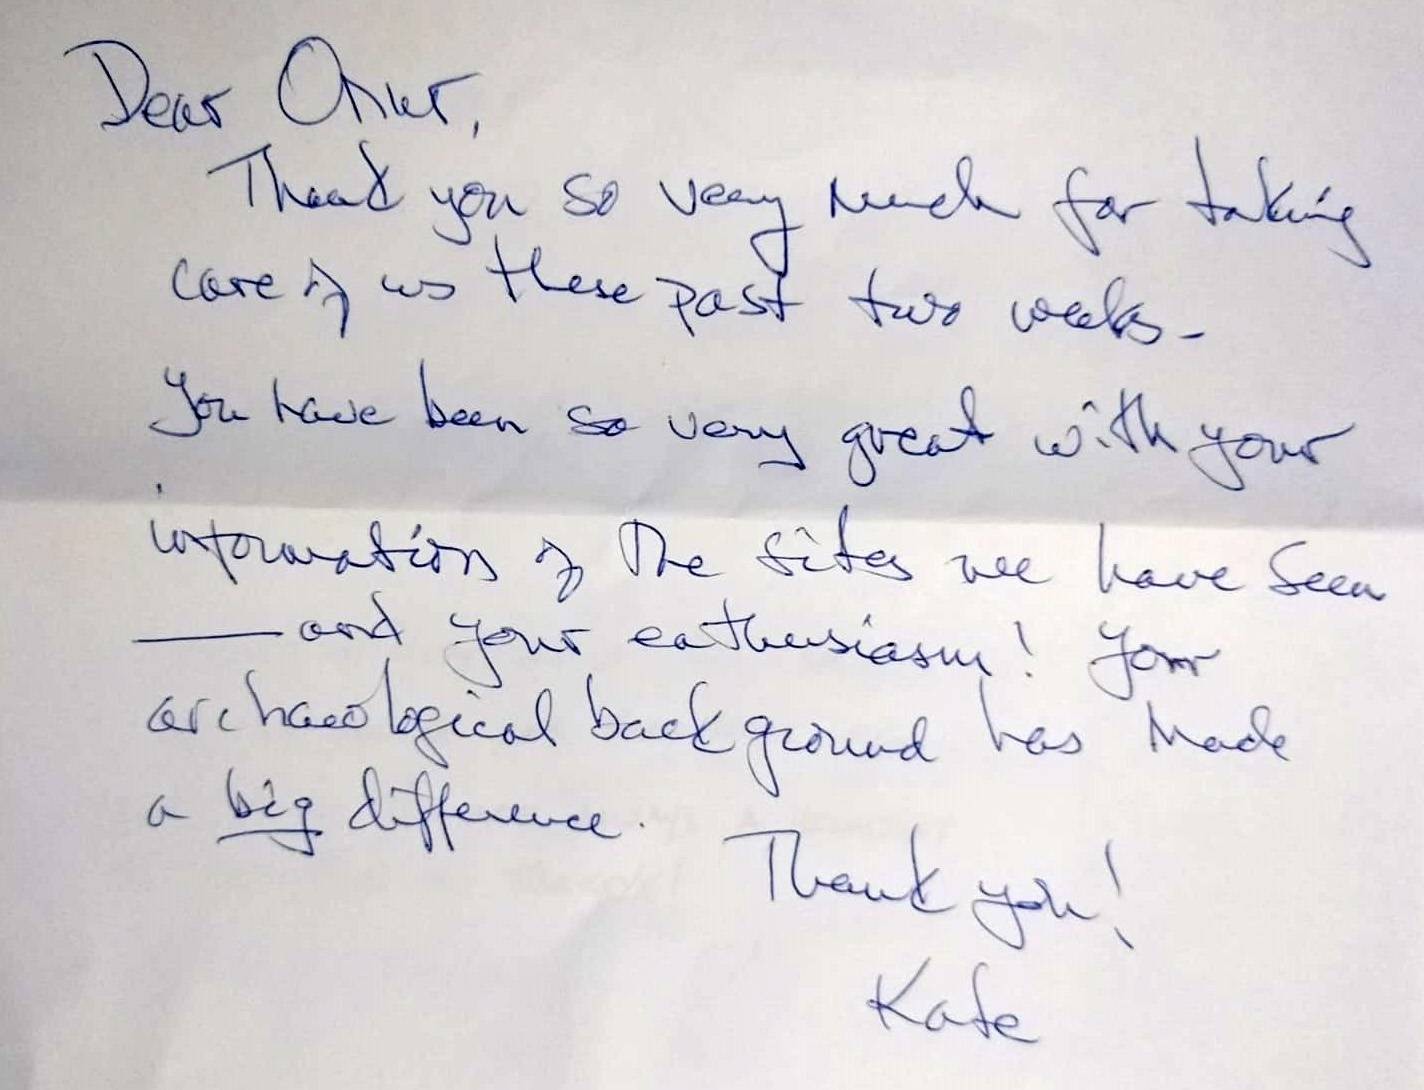 Dear Onur,
Thank you so very much for taking
care of us these past two weeks -
You have been so very great with your
information of the sites we have seen
— and your enthusiasm! Your
archaeological background has made
a big difference.
Thank you!
Kate